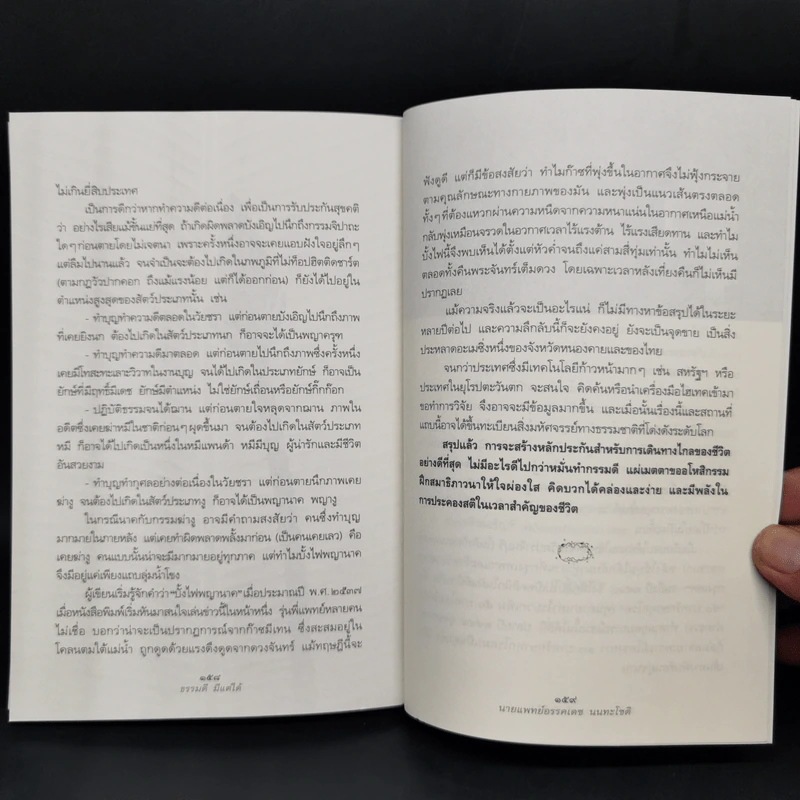 ไม่เกินยี่สิบประเทศ
เป็นการดีกว่าหากทำความดีต่อเนื่อง เพื่อเป็นการรับประกันสุขคติ
ว่า อย่างไรเสียแม้ขั้นแย่ที่สุด ถ้าเกิดผิดพลาดบังเอิญไปนึกถึงกรรมจิปาถะ
ใดๆ ก่อนตายโดยไม่เจตนา เพราะครั้งหนึ่งอาจจะเคยแอบฝังใจอยู่ลึกๆ
แต่ลืมไปนานแล้ว จนจำเป็นจะต้องไปเกิดในภพภูมิที่ไม่ท็อปฮิตติดชาร์ต
(ตามกฎวัวปากคอก ถึงแม้แรงน้อย แต่ก็ได้ออกก่อน) ก็ยังได้ไปอยู่ใน
ตำแหน่งสูงสุดของสัตว์ประเภทนั้น เช่น
- ทำบุญทำความดีตลอดในวัยชรา แต่ก่อนตายบังเอิญไปนึกถึงภาพ
ที่เคยยิงนก ต้องไปเกิดในสัตว์ประเภทนก ก็อาจจะได้เป็นพญาครุฑ
- ทำบุญทำความดีมาตลอด แต่ก่อนตายไปนึกถึงภาพซึ่งครั้งหนึ่ง
เคยมีโทสะทะเลาะวิวาทในงานบุญ จนได้ไปเกิดในประเภทยักษ์ ก็อาจเป็น
ยักษ์ที่มีฤทธิ์มีเดช ยักษ์มีตำแหน่ง ไม่ใช่ยักษ์เถื่อนหรือยักษ์กิ๊กก๊อก
- ปฏิบัติธรรมจนได้ฌาน แต่ก่อนตายใจหลุดจากฌาน ภาพใน
อดีตซึ่งเคยฆ่าหมีในชาติก่อนๆ ผุดขึ้นมา จนต้องไปเกิดในสัตว์ประเภท
หมี ก็อาจได้ไปเกิดเป็นหนึ่งในหมีแพนด้า หมีมีบุญ ผู้น่ารักและมีชีวิต
อันสวยงาม
- ทำบุญทำกุศลอย่างต่อเนื่องในวัยชรา แต่ก่อนตายนึกภาพเคย
ฆ่างู จนต้องไปเกิดในสัตว์ประเภทงู ก็อาจได้เป็นพญานาค พญางู
ในกรณีนาคกับกรรมฆ่างู อาจมีคำถามสงสัยว่า คนซึ่งทำบุญ
มากมายในภายหลัง แต่เคยทำผิดพลาดพลั้งมาก่อน (เป็นคนเคยเลว) คือ
เคยฆ่างู คนแบบนั้นน่าจะมีมากมายอยู่ทุกภาค แต่ทำไมบั้งไฟพญานาค
จึงมีอยู่แค่เพียงแถบลุ่มน้ำโขง
ผู้เขียนเริ่มรู้จักคำว่า"บั้งไฟพญานาค"เมื่อประมาณปี พ.ศ.๒๕๓๗
เมื่อหนังสือพิมพ์เริ่มหันมาสนใจเล่นข่าวนี้ในหน้าหนึ่ง รุ่นพี่แพทย์หลายคน
ไม่เชื่อ บอกว่าน่าจะเป็นปรากฏการณ์จากก๊าซมีเทน ซึ่งสะสมอยู่ใน
โคลนตมใต้แม่น้ำ ถูกดูดด้วยแรงดึงดูดจากดวงจันทร์ แม้ทฤษฎีนี้จะ
๑๕๘
ธรรมดี มีแต่ได้
ฟังดูดี แต่ก็มีข้อสงสัยว่า ทำไมก๊าซที่พุ่งขึ้นในอากาศจึงไม่ฟุ้งกระจาย
ตามคุณลักษณะทางกายภาพของมัน และพุ่งเป็นแนวเส้นตรงตลอด
ทั้งๆ ที่ต้องแหวกผ่านความหนืดจากความหนาแน่นในอากาศเหนือแม่น้ำ
กลับพุ่งเหมือนจรวดในอวกาศไร้แรงต้าน ไร้แรงเสียดทาน และทำไม
บั้งไฟนี้จึงพบเห็นได้ตั้งแต่หัวค่ำจนถึงแค่สามสี่ทุ่มเท่านั้น ทำไมไม่เห็น
ตลอดทั้งคืนพระจันทร์เต็มดวง โดยเฉพาะเวลาหลังเที่ยงคืนก็ไม่เห็นมี
ปรากฏเลย
แม้ความจริงแล้วจะเป็นอะไรแน่ ก็ไม่มีทางหาข้อสรุปได้ในระยะ
หลายปีต่อไป และความลึกลับนี้ก็จะยังคงอยู่ ยังจะเป็นจุดขาย เป็นสิ่ง
ประหลาดอะเมซิ่งหนึ่งของจังหวัดหนองคายและของไทย
จนกว่าประเทศซึ่งมีเทคโนโลยีก้าวหน้ามากๆ เช่น สหรัฐฯ หรือ
ประเทศในยุโรปตะวันตก จะสนใจ คิดค้นหรือนำเครื่องมือไฮเทคเข้ามา
ขอทำการวิจัย จึงอาจจะมีข้อมูลมากขึ้น และเมื่อนั้นเรื่องนี้และสถานที่
แถบนี้อาจได้ขึ้นทะเบียนสิ่งมหัศจรรย์ทางธรรมชาติที่โด่งดังระดับโลก
สรุปแล้ว การจะสร้างหลักประกันสำหรับการเดินทางไกลของชีวิต
อย่างดีที่สุด ไม่มีอะไรดีไปกว่าหมั่นทำกรรมดี แผ่เมตตาขออโหสิกรรม
ฝึกสมาธิภาวนาให้ใจผ่องใส คิดบวกได้คล่องและง่าย และมีพลังใน
การประคองสติในเวลาสำคัญของชีวิต
๑๕๙
นายแพทย์อรรคเดช นนทะโชติ